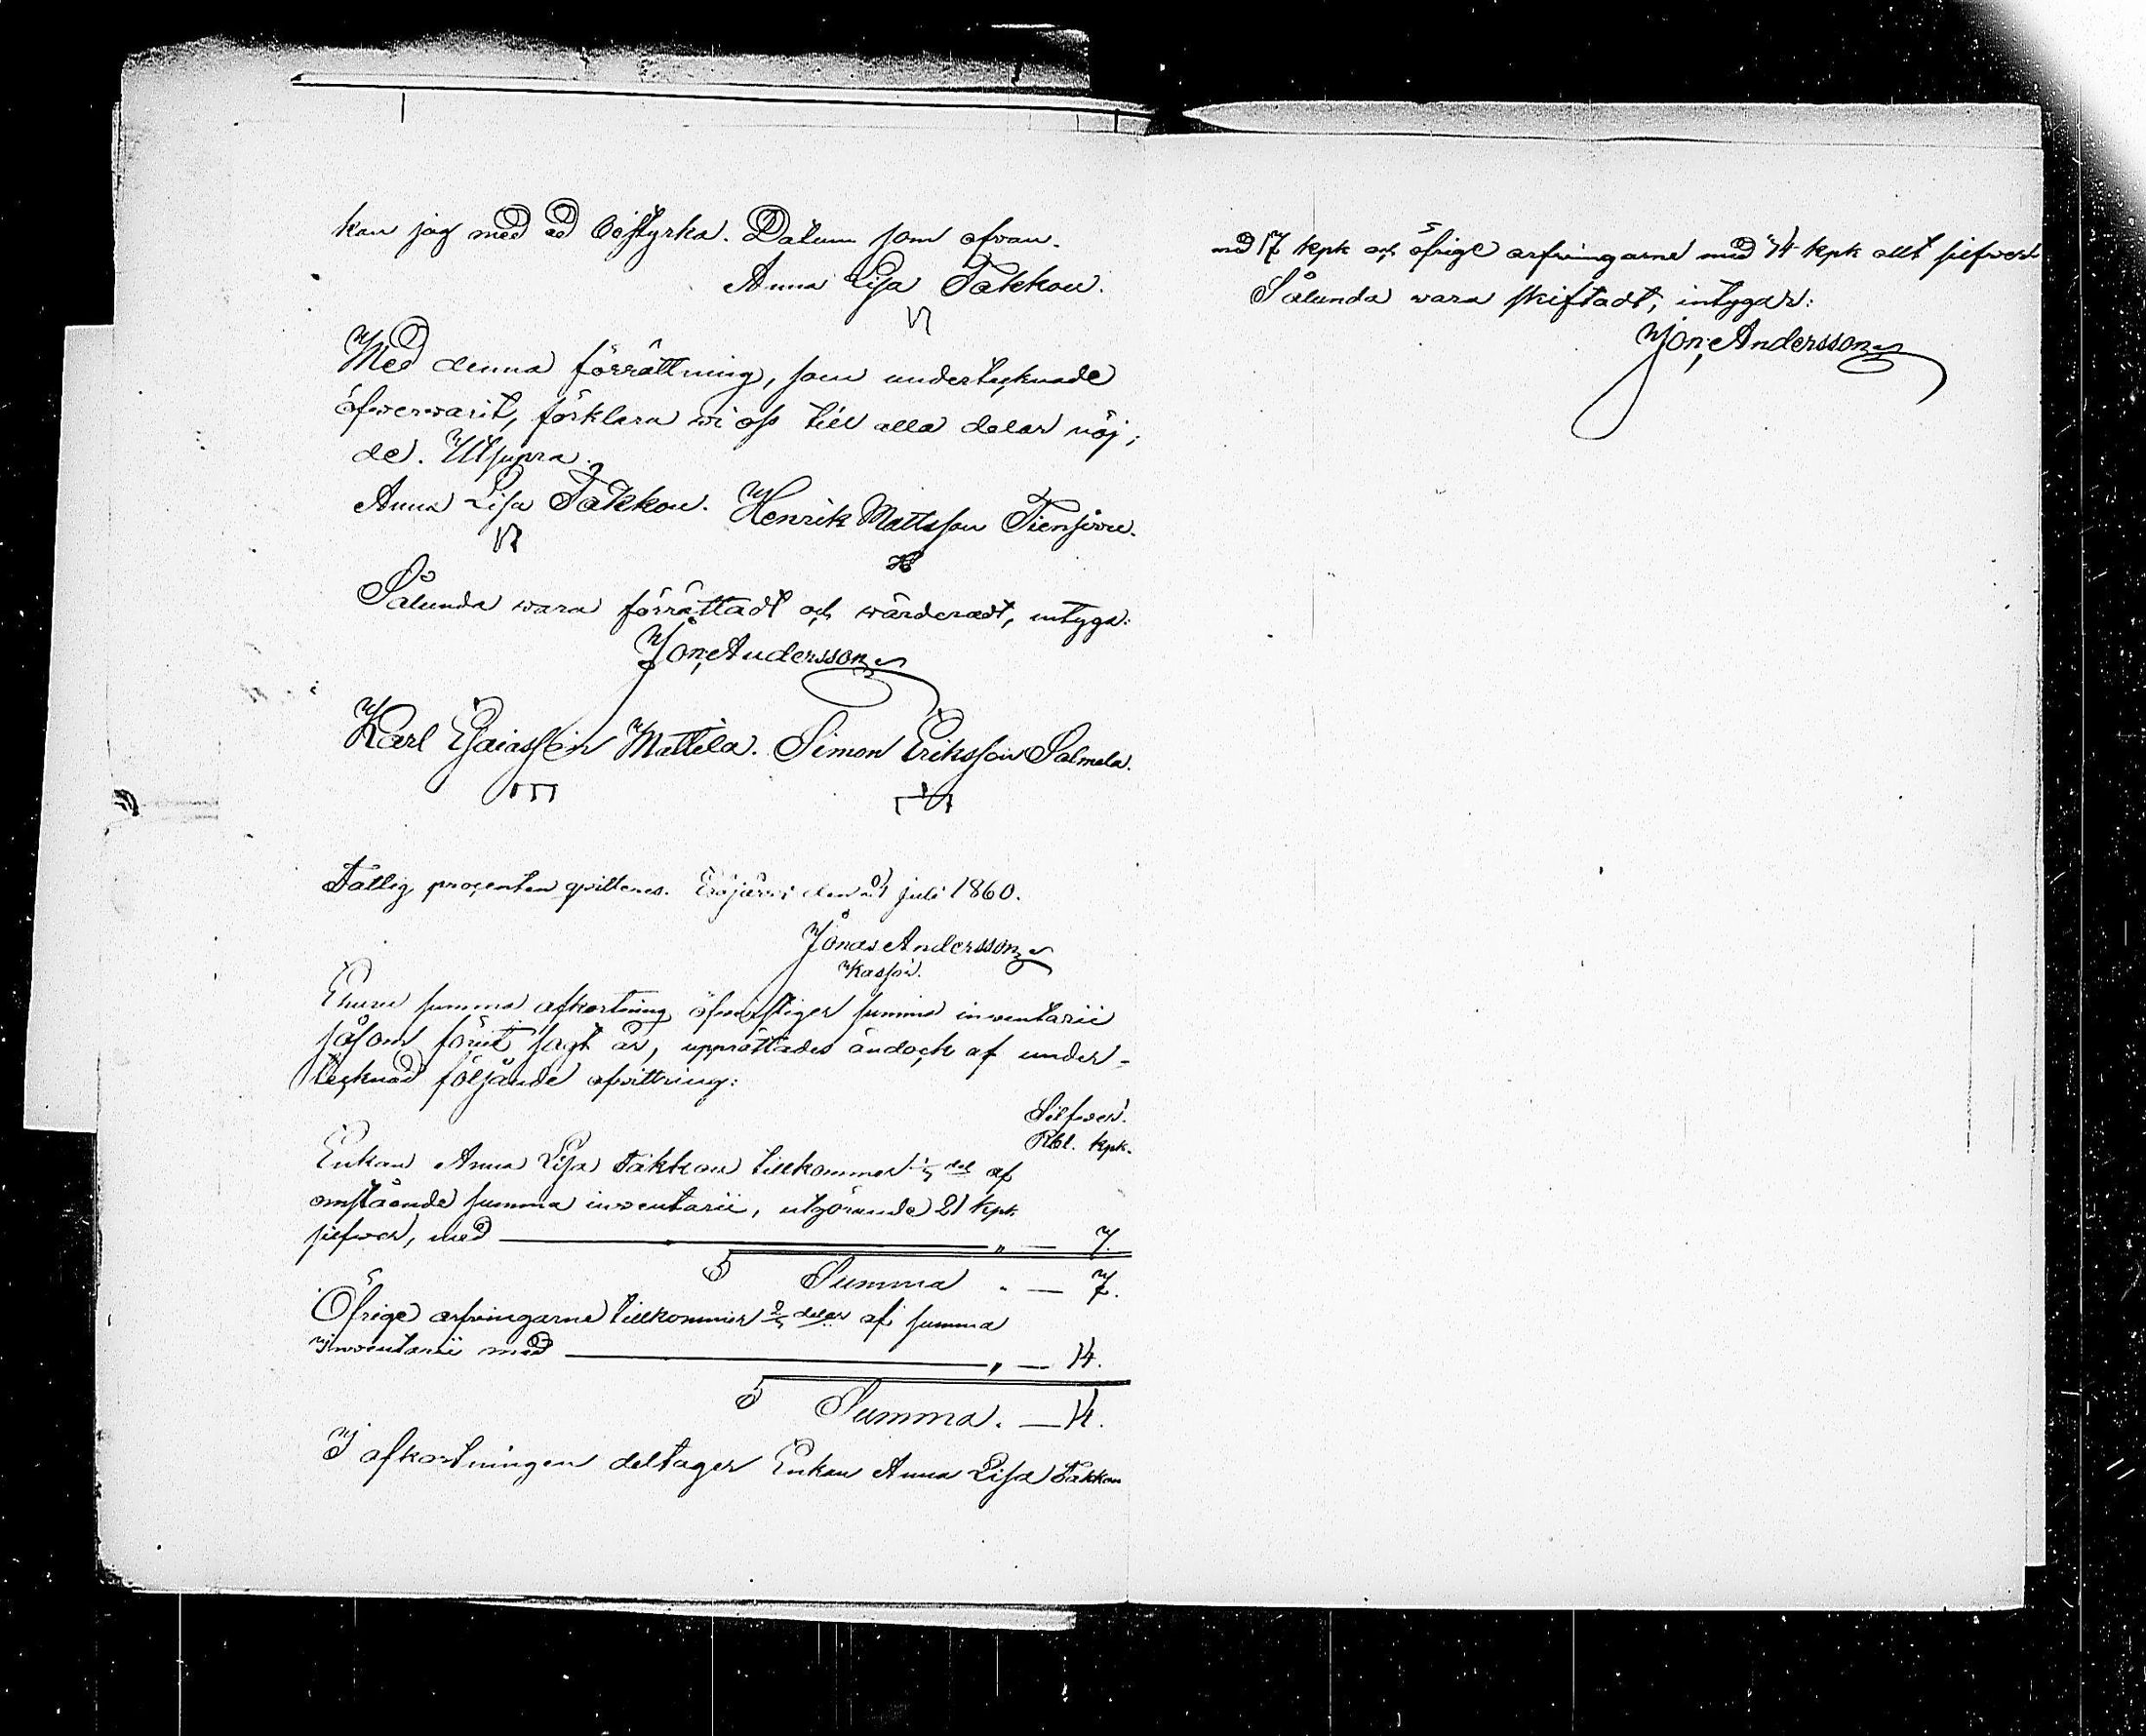 kan jag med ed bestyrka. Datum som ofvan.
Anna Lisa Takkou.
Med denna förrättning, som undertecknade
öfwerwarit, förklara wi oss till alla delar nöj;
de. Utsupra.
Anna Lisa Takkou. Henrik Mattsson Tiensivu.
Sålunda wara förrättadt och wärderadt, intyga:
Jon: Andersson
Karl Esaiasson Mattila. Simon Eriksson Salmela.
Fattig procenten qvitteras. Eräjärvi den 24 juli 1860.
Jonas Andersson
Kassör.
Ehuru summa afkortning öfwerstiger summa inventarii
såsom förut sagt är, upprättades ändock af under-
tecknad följande afvittring:
Silfwer.
Rbl. kpk.
Enkan Anna Lisa Takkou tillkommer 1/3 del af
omstående summa inventarii, utgörande 21 kpk
silfwer, med „ — 7.
S Summa . — 7.
Öfrige arfvingarne tillkommer 2/3 delar af summa
inventarii med „ — 14.
S Summa. — 14.
I afkortningen deltager Enkan Anna Lisa Takkou
med 17 kpk och öfrige arfvingarne med 34 kpk allt silfwer
Sålunda wara skiftadt, intygar:
Jon: Andersson